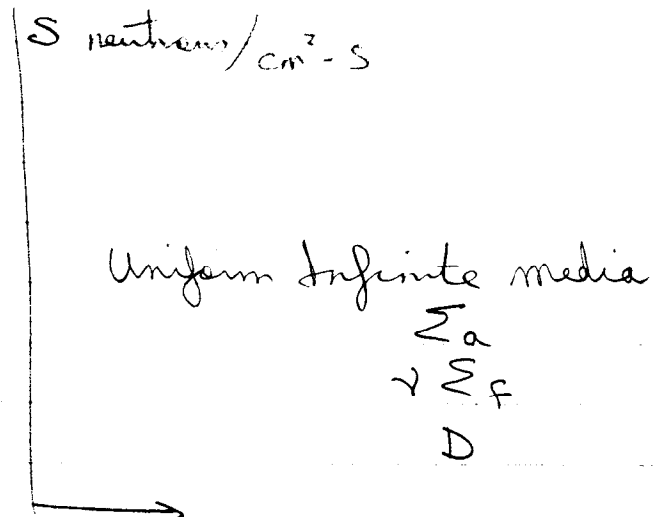 S neutrons/cm²-s
Uniform Infinite media
Σa
νΣf
D